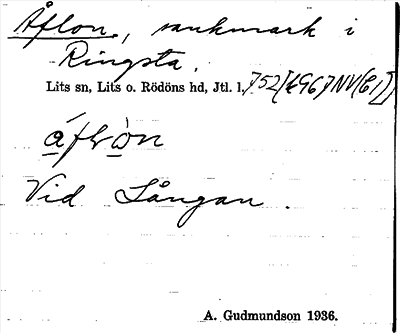 Åflon, sankmark i
Ringsta.
Lits sn, Lits o. Rödöns hd, Jtl. 1, 752
áflòn
Vid Långan.
A. Gudmundson 1936.